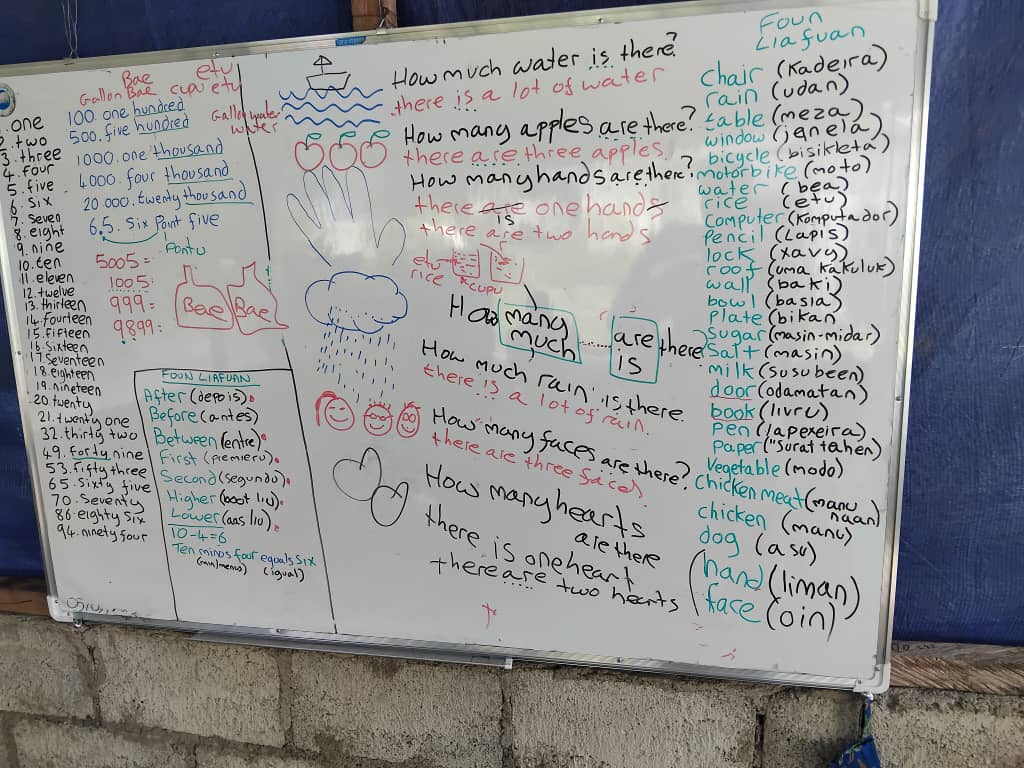 Bae
Gallon Bae
etu
cupu etu
Gallon water
water
100. one hundred
500. five hundred
1000. one thousand
4000. four thousand
20 000. twenty thousand
6.5. Six Point five
Pontu
5005=
1005:
999:
9899:
Bae
Bae
1. one
2. two
3. three
4. four
5. five
6. Six
7. Seven
8. eight
9. nine
10. ten
11. eleven
12. twelve
13. thirteen
14. fourteen
15. fifteen
16. Sixteen
17. Seventeen
18. eighteen
19. nineteen
20. twenty
21. twenty one
32. thirty two
49. Forty nine
53. fifty three
65. Sixty five
70. Seventy
86. eighty Six
94. ninety four
FOUN LIAFUAN
After (depois)
Before (antes)
Between (entre)
First (premieru)
Second (segundu)
Higher (boot liu)
Lower (aas liu)
10-4=6
Ten minos four equals Six
(menus) (igual)
How much water is there?
there is a lot of water
How many apples are there?
there are three apples.
How many hands are there?
there are one hands
is
there are two hands
etu
rice
cupu
How many much ...... are is there?
How much rain is there
there is a lot of rain.
How many faces are there?
there are three faces
How many hearts
are there
there is one heart
there are two hearts
Foun
Liafuan
chair (Kadeira)
rain (udan)
table (meza)
window (janela)
bicycle (bisikleta)
motorbike (moto)
water (bea)
rice (etu)
computer (Komputador)
Pencil (Lapis)
lock (xavy)
roof (uma kakuluk)
wall (baki)
bowl (basia)
Plate (bikan)
Sugar (masin-midar)
Salt (masin)
milk (susubeen)
door (odamatan)
book (livru)
Pen (lapexeira)
Paper ("Surat tahen)
Vegetable (modo)
Chicken meat (manu naan)
chicken (manu)
dog (asu)
hand (liman)
face (oin)